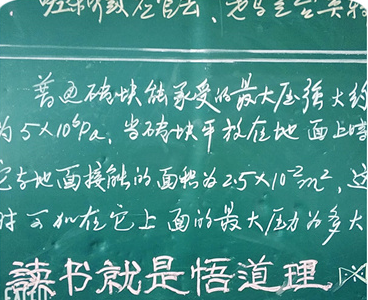 普通砖块能承受的最大压强大约
为5×10⁶Pa,当砖块平放在地面上时
它与地面接触的面积为2.5×10⁻²m²,这
时可加在它上面的最大压力为多大
读书就是悟道理